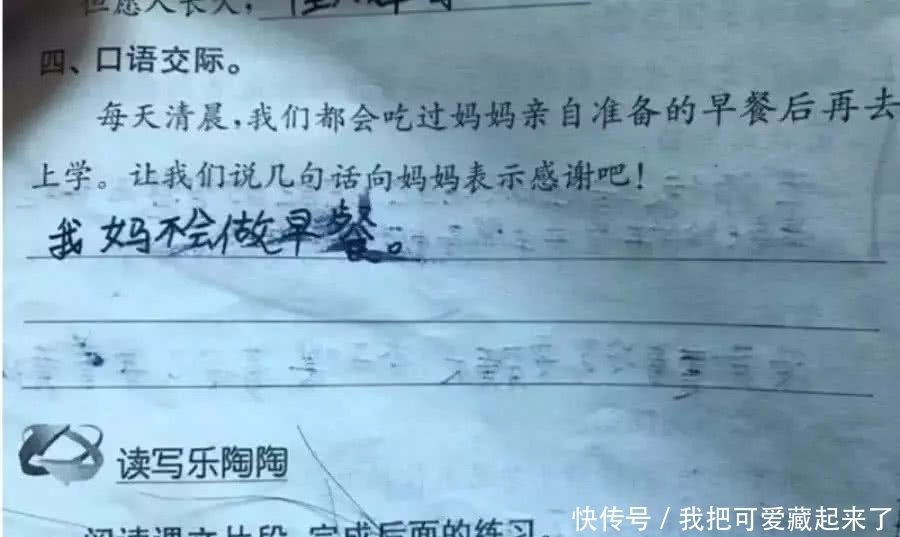 但愿人长久，
四、口语交际。
每天清晨，我们都会吃过妈妈亲自准备的早餐后再去
上学。让我们说几句话向妈妈表示感谢吧！
我妈不会做早餐。
读写乐陶陶
阅读课文片段，完成后面的练习。
快传号 / 我把可爱藏起来了